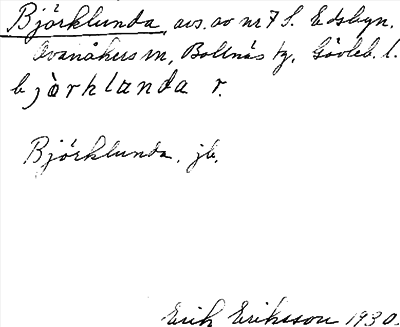 Björklunda, avs. av nr 7 S. Edsbyn.
Ovanåkers sn, Bollnäs tg, Gävleb. l.
bjòrklanda r.
Björklunda, jb.
Erik Eriksson 1930.